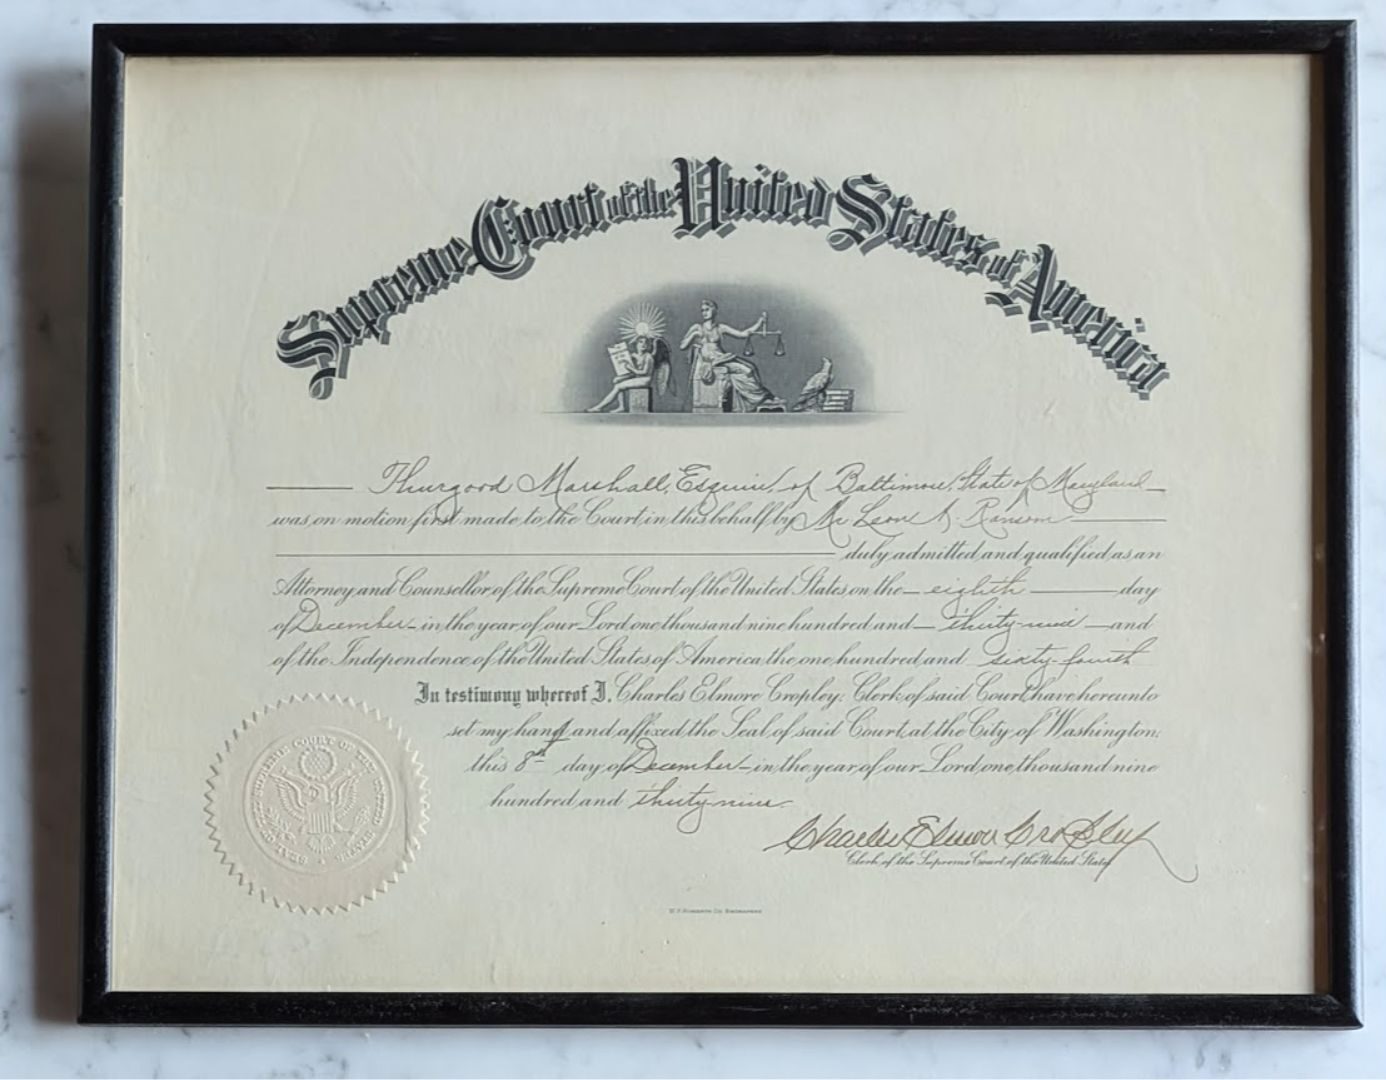 Supreme Court of the United States of America
Thurgood Marshall, Esquire, of Baltimore, State of Maryland
was, on motion first made to the Court in this behalf by Mr Leon A. Ransom
duly admitted and qualified as an
Attorney and Counsellor of the Supreme Court of the United States on the eighth day
of December in the year of our Lord one thousand nine hundred and thirty-nine and
of the Independence of the United States of America the one hundred and sixty-fourth
In testimony whereof I, Charles Elmore Cropley, Clerk of said Court have hereunto
set my hand and affixed the Seal of said Court at the City of Washington,
this 8th day of December in the year of our Lord one thousand nine
hundred and thirty-nine
Charles Elmore Cropley
Clerk of the Supreme Court of the United States
SEAL OF THE SUPREME COURT OF THE UNITED STATES